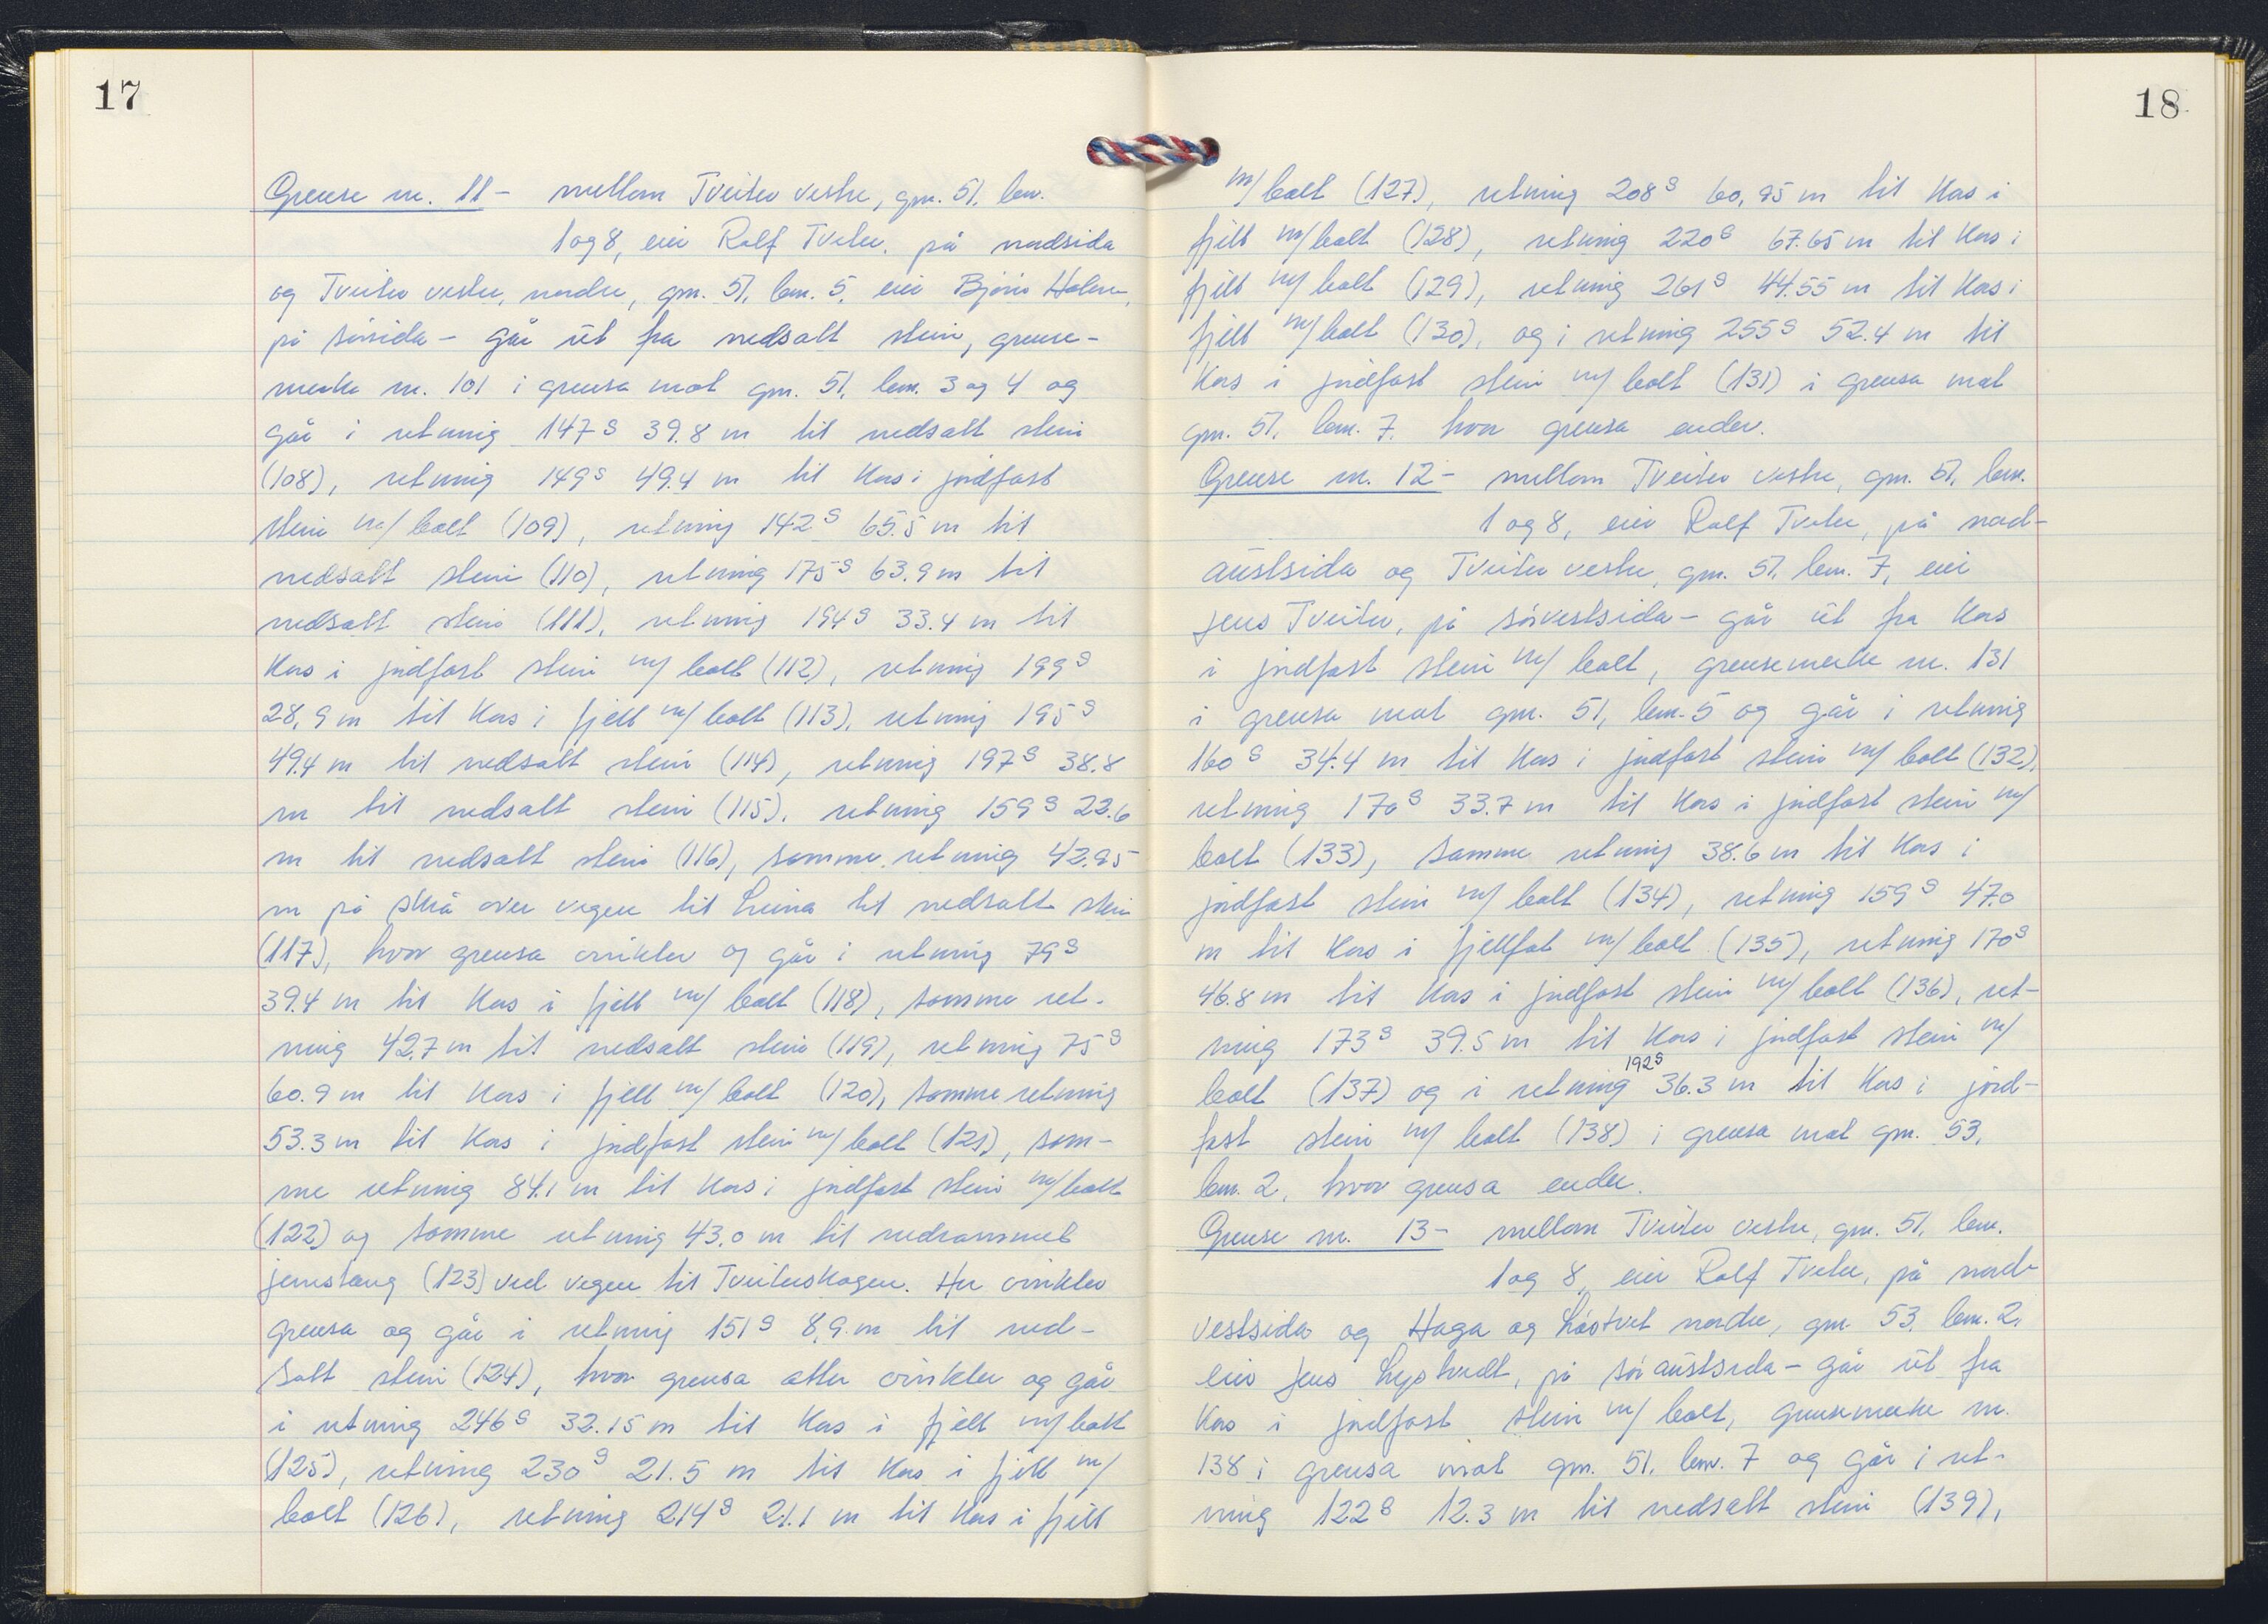 17
Grense nr. 11 - mellom Tveiten vestre, gnr. 51, bnr.
1 og 8, eier Rolf Tveten, på nordsida
og Tveiten vestre, nordre, gnr. 51, bnr. 5, eier Bjørn Holm,
på sørsida - går ut fra nedsatt stein, grense-
merke nr. 101 i grensa mot gnr. 51, bnr. 3 og 4 og
går i retning 147g 39.8 m til nedsatt stein
(108), retning 149g 49.4 m til kors i jordfast
stein m/ bolt (109), retning 142g 65.5 m til
nedsatt stein (110), retning 175g 63.9 m til
nedsatt stein (111), retning 194g 33.4 m til
kors i jordfast stein m/ bolt (112), retning 199g
28,9 m til kors i fjell m/ bolt (113), retning 195g
49.4 m til nedsatt stein (114), retning 197g 38.8
m til nedsatt stein (115), retning 159g 23.6
m til nedsatt stein (116), samme retning 42.95
m på skrå over vegen til til nedsatt stein
(117), hvor grensa vinkler og går i retning 79g
39.4 m til kors i fjell m/ bolt (118), samme ret-
ning 42.7 m til nedsatt stein (119), retning 75g
60.9 m til kors i fjell m/ bolt (120), samme retning
53.3 m til kors i jordfast stein m/ bolt (121), sam-
me retning 84.1 m til kors i jordfast stein m/ bolt
(122) og samme retning 43.0 m til nedrammet
jernstang (123) ved vegen til Tveiterskogen. Her vinkler
grensa og går i retning 151g 8.9 m til ned-
satt stein (124), hvor grensa atter vinkler og går
i retning 246g 32.15 m til kors i fjell m/ bolt
(125), retning 230g 21.5 m til kors i fjell m/
bolt (126), retning 214g 21.1 m til kors i fjell
18
m/ bolt (127), retning 208g 60,95 m til kors i
fjell m/ bolt (128), retning 220g 67.65 m til kors i
fjell m/ bolt (129), retning 261g 44.55 m til kors i
fjell m/ bolt (130), og i retning 255g 52.4 m til
kors i jordfast stein m/ bolt (131) i grensa mot
gnr. 51, bnr. 7, hvor grensa ender.
Grense nr. 12 - mellom Tveiten vestre, gnr. 51, bnr.
1 og 8, eier Rolf Tveten, på nord-
austsida og Tveiten vestre, gnr. 51, bnr. 7, eier
Jens Tveiten, på sørvestsida - går ut fra kors
i jordfast stein m/ bolt, grensemerke nr. 131
i grensa mot gnr. 51, bnr. 5 og går i retning
160g 34.4 m til kors i jordfast stein m/ bolt (132),
retning 170g 33.7 m til kors i jordfast stein m/
bolt (133), samme retning 38.6 m til kors i
jordfast stein m/ bolt (134), retning 159g 47.0
m til kors i fjellfot m/ bolt (135), retning 170g
46.8 m til kors i jordfast stein m/ bolt (136), ret-
ning 173g 39.5 m til kors i jordfast stein m/
bolt (137) og i retning 192g 36.3 m til kors i jord-
fast stein m/ bolt (138) i grensa mot gnr. 53,
bnr. 2, hvor grensa ender.
Grense nr. 13 - mellom Tveiten vestre, gnr. 51, bnr.
1 og 8, eier Rolf Tveten, på nord-
vestsida og Haga og Løstvet nordre, gnr. 53, bnr. 2,
eier Jens på søraustsida - går ut fra
kors i jordfast stein m/ bolt, grensemerke nr.
138 i grensa mot gnr. 51, bnr. 7 og går i ret-
ning 122g 12.3 m til nedsatt stein (139),